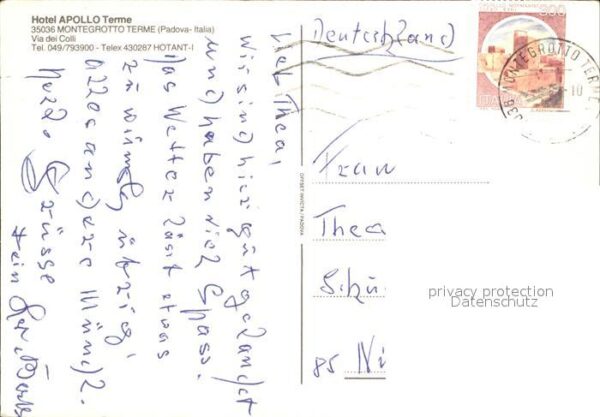 Hotel APOLLO Terme
35036 MONTEGROTTO TERME (Padova - Italia)
Via dei Colli
Tel. 049/793900 - Telex 430287 HOTANT-I
Lieb Thea,
wir sind hier gut gelandet
und haben viel Spass.
Das Wetter lässt etwas
zu wünsch, übrig,
alles andere mündl.
Herzl. Grüsse
OFFSET INVICTA / PADOVA
Deutschland
500
ITALIA
MONTEGROTTO TERME
Frau
Thea
Schü
85 Nü
privacy protection
Datenschutz